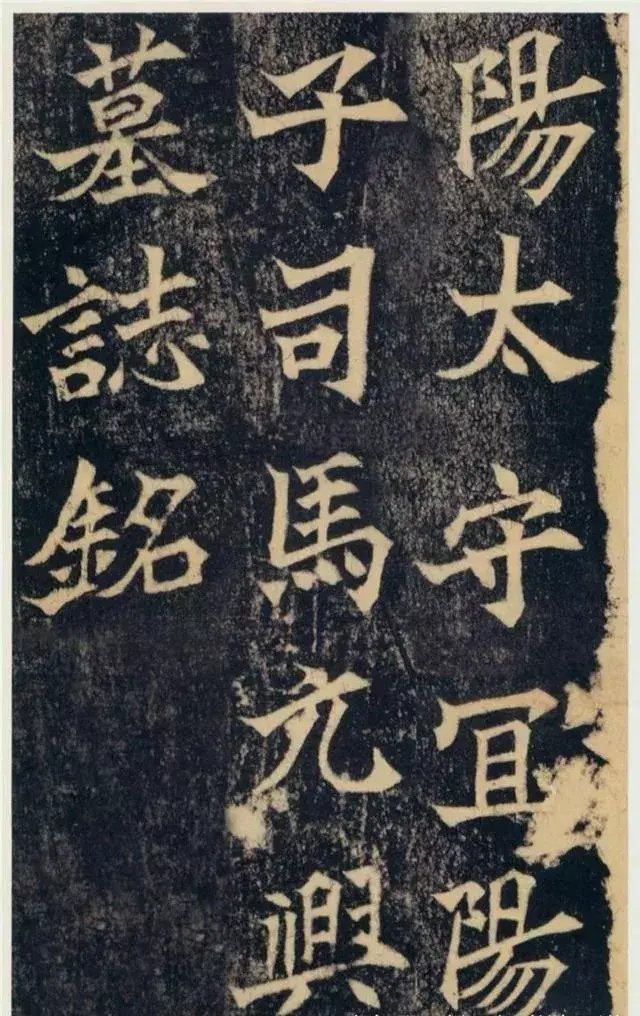 陽太守冝陽
子司馬元興
墓誌銘